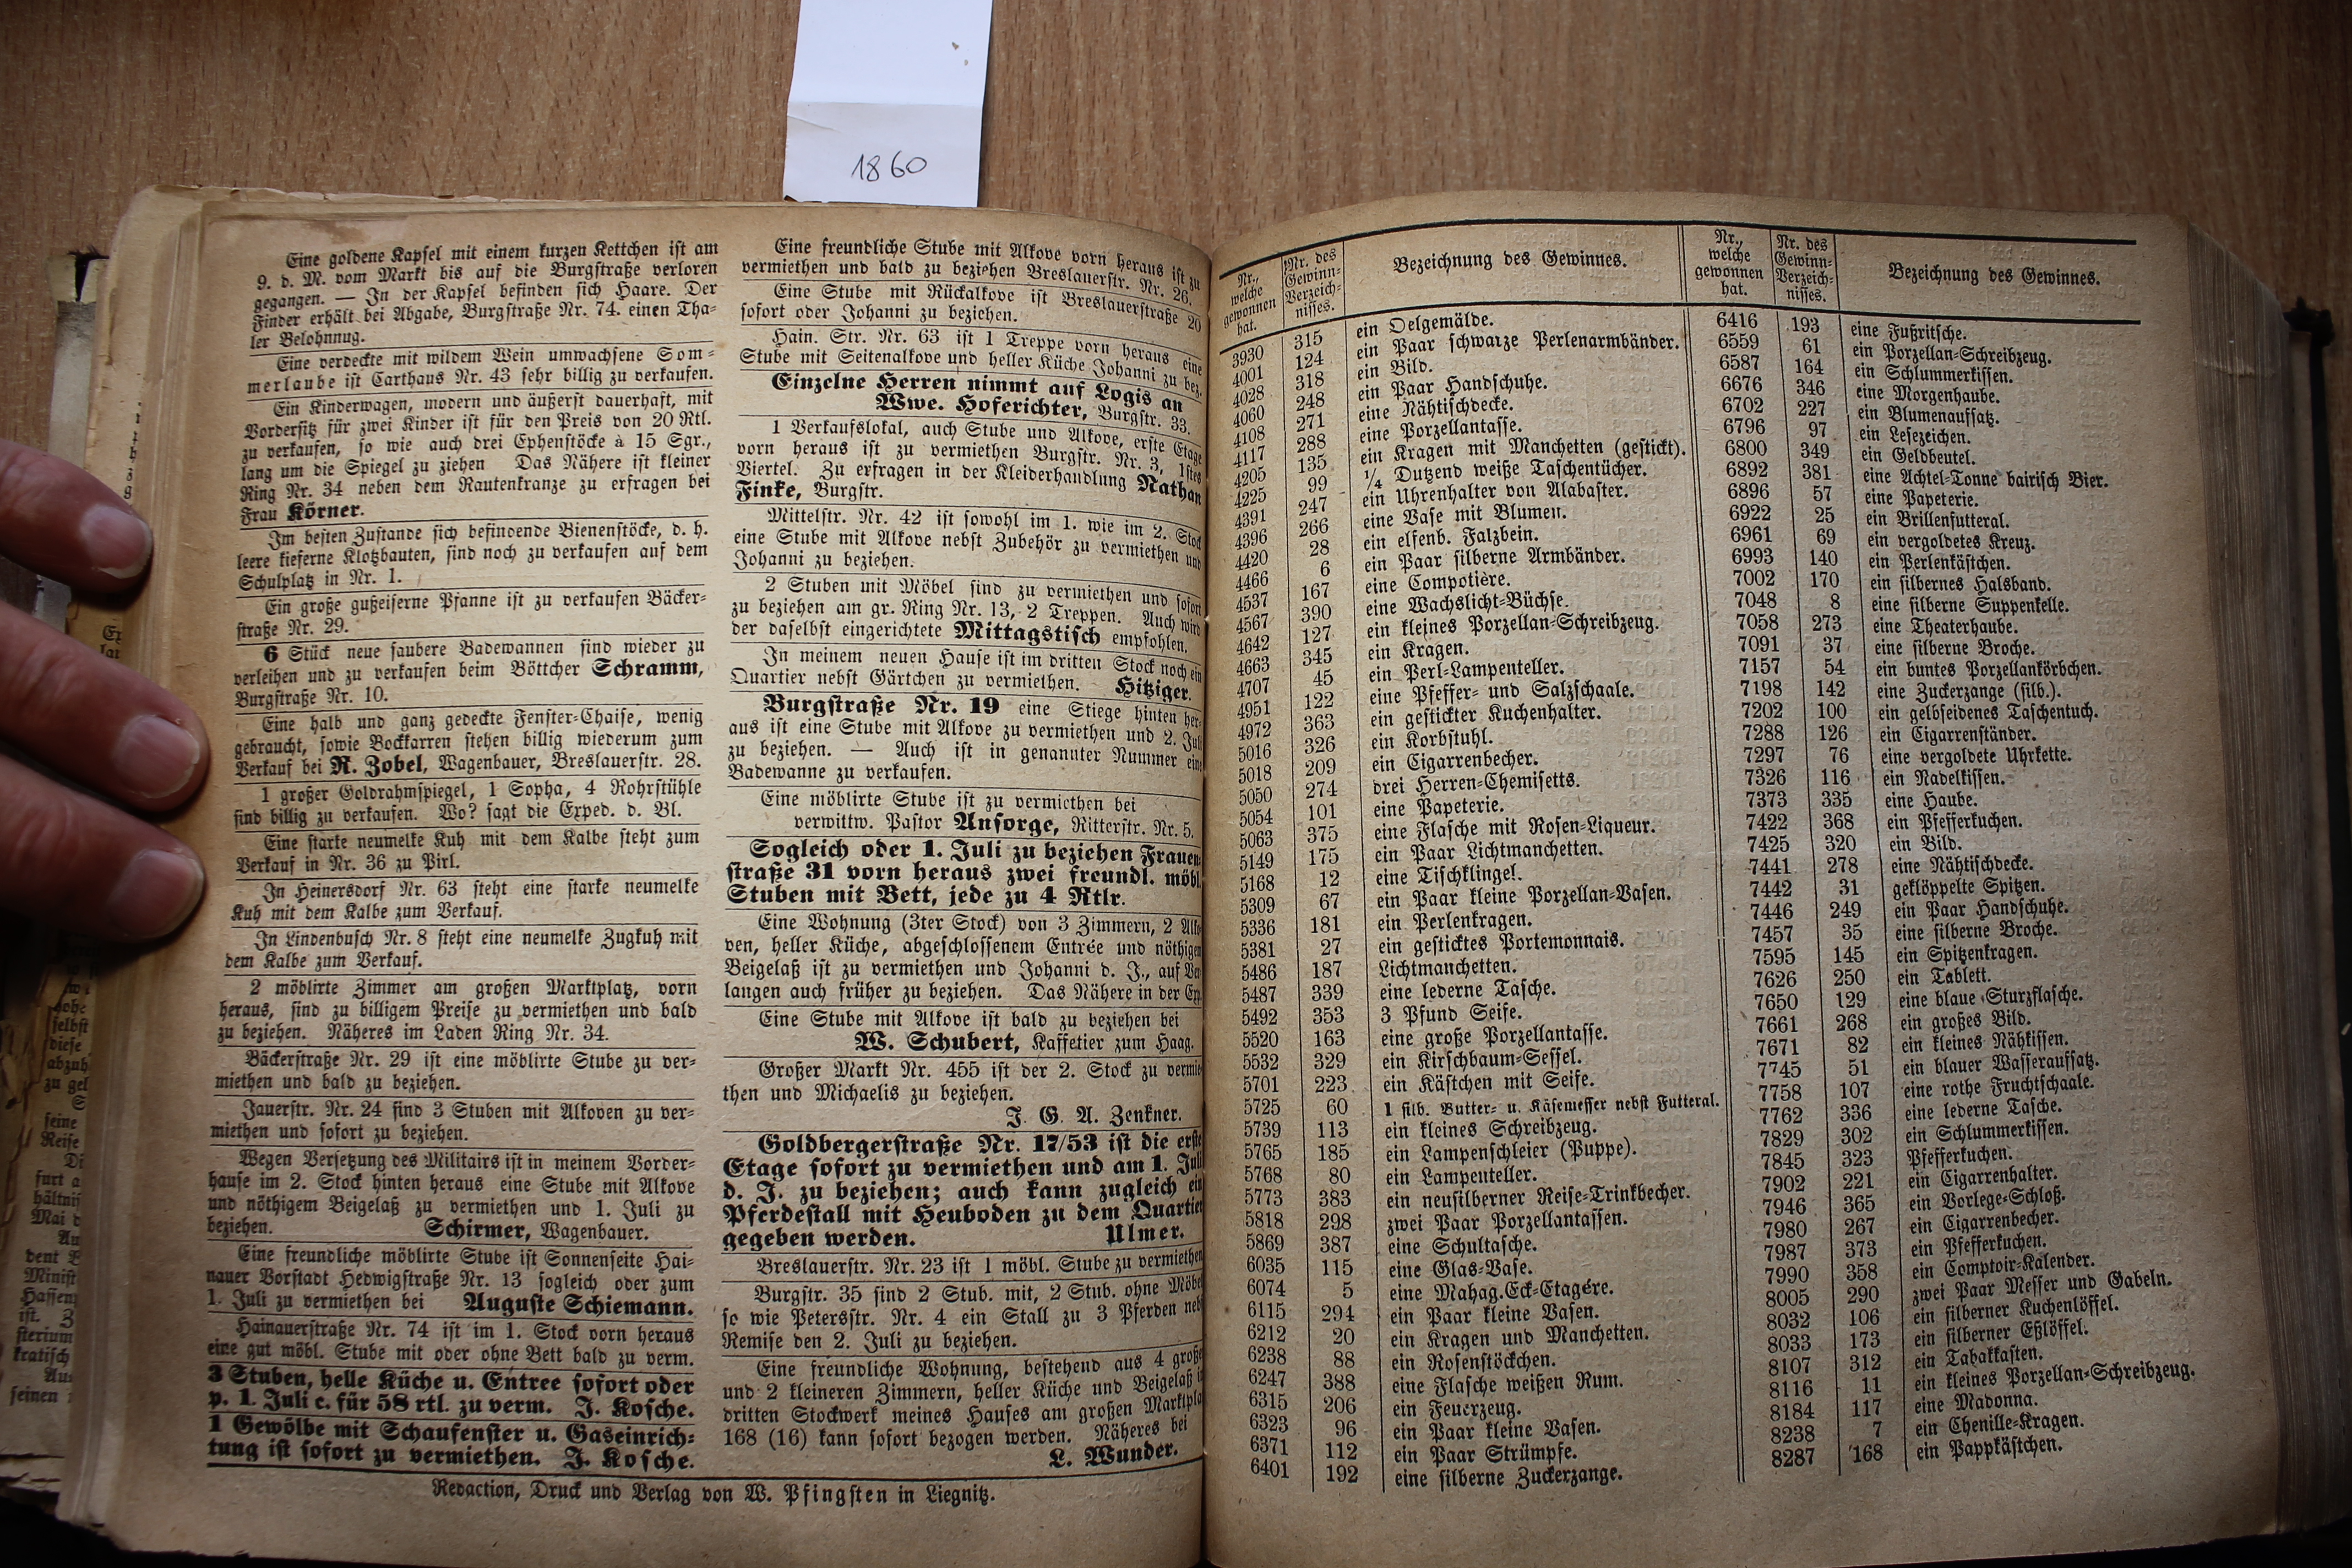 1860
Eine goldene Kapsel mit einem kurzen Kettchen ist am
9. d. M. vom Markt bis auf die Burgstraße verloren
gegangen. — In der Kapsel befinden sich Haare. Der
Finder erhält bei Abgabe, Burgstraße Nr. 74. einen Tha-
ler Belohnnug.
Eine verdeckte mit wildem Wein umwachsene Som-
merlaube ist Carthaus Nr. 43 sehr billig zu verkaufen.
Ein Kinderwagen, modern und äußerst dauerhaft, mit
Vordersitz für zwei Kinder ist für den Preis von 20 Rtl.
zu verkaufen, so wie auch drei Ephenstöcke à 15 Sgr.,
lang um die Spiegel zu ziehen Das Nähere ist kleiner
Ring Nr. 34 neben dem Rautenkranze zu erfragen bei
Frau Körner.
Im besten Zustande sich befindende Bienenstöcke, d. h.
leere kieferne Klotzbauten, sind noch zu verkaufen auf dem
Schulplatz in Nr. 1.
Ein große gußeiserne Pfanne ist zu verkaufen Bäcker-
straße Nr. 29.
6 Stück neue saubere Badewannen sind wieder zu
verleihen und zu verkaufen beim Böttcher Schramm,
Burgstraße Nr. 10.
Eine halb und ganz gedeckte Fenster-Chaise, wenig
gebraucht, sowie Bockkarren stehen billig wiederum zum
Verkauf bei R. Zobel, Wagenbauer, Breslauerstr. 28.
1 großer Goldrahmspiegel, 1 Sopha, 4 Rohrstühle
sind billig zu verkaufen. Wo? sagt die Exped. d. Bl.
Eine starke neumelke Kuh mit dem Kalbe steht zum
Verkauf in Nr. 36 zu Pirl.
In Heinersdorf Nr. 63 steht eine starke neumelke
Kuh mit dem Kalbe zum Verkauf.
In Lindenbusch Nr. 8 steht eine neumelke Zugkuh mit
dem Kalbe zum Verkauf.
2 möblirte Zimmer am großen Marktplatz, vorn
heraus, sind zu billigem Preise zu vermiethen und bald
zu beziehen. Näheres im Laden Ring Nr. 34.
Bäckerstraße Nr. 29 ist eine möblirte Stube zu ver-
miethen und bald zu beziehen.
Jauerstr. Nr. 24 sind 3 Stuben mit Alkoven zu ver-
miethen und sofort zu beziehen.
Wegen Versetzung des Militairs ist in meinem Vorder-
hause im 2. Stock hinten heraus eine Stube mit Alkove
und nöthigem Beigelaß zu vermiethen und 1. Juli zu
beziehen. Schirmer, Wagenbauer.
Eine freundliche möblirte Stube ist Sonnenseite Hai-
nauer Vorstadt Hedwigstraße Nr. 13 sogleich oder zum
1. Juli zu vermiethen bei Auguste Schiemann.
Hainauerstraße Nr. 74 ist im 1. Stock vorn heraus
eine gut möbl. Stube mit oder ohne Bett bald zu verm.
3 Stuben, helle Küche u. Entree sofort oder
p. 1. Juli c. für 58 rtl. zu verm. J. Kosche.
1 Gewölbe mit Schaufenster u. Gaseinrich-
tung ist sofort zu vermiethen. J. Kosche.
Eine freundliche Stube mit Alkove vorn heraus ist zu
vermiethen und bald zu beziehen Breslauerstr. Nr. 26.
Eine Stube mit Rückalkove ist Breslauerstraße 20
sofort oder Johanni zu beziehen.
Hain. Str. Nr. 63 ist 1 Treppe vorn heraus eine
Stube mit Seitenalkove und heller Küche Johanni zu bez.
Einzelne Herren nimmt auf Logis an
Wwe. Hoferichter, Burgstr. 33.
1 Verkaufslokal, auch Stube und Alkove, erste Etage
vorn heraus ist zu vermiethen Burgstr. Nr. 3, 1stes
Viertel. Zu erfragen in der Kleiderhandlung Nathan
Finke, Burgstr.
Mittelstr. Nr. 42 ist sowohl im 1. wie im 2. Stock
eine Stube mit Alkove nebst Zubehör zu vermiethen und
Johanni zu beziehen.
2 Stuben mit Möbel sind zu vermiethen und sofort
zu beziehen am gr. Ring Nr. 13, 2 Treppen. Auch wird
der daselbst eingerichtete Mittagstisch empfohlen.
In meinem neuen Hause ist im dritten Stock noch ein
Quartier nebst Gärtchen zu vermiethen. Hitziger.
Burgstraße Nr. 19 eine Stiege hinten her-
aus ist eine Stube mit Alkove zu vermiethen und 2. Juli
zu beziehen. — Auch ist in genannter Nummer eine
Badewanne zu verkaufen.
Eine möblirte Stube ist zu vermiethen bei
verwittw. Pastor Ansorge, Ritterstr. Nr. 5.
Sogleich oder 1. Juli zu beziehen Frauen-
straße 31 vorn heraus zwei freundl. möbl.
Stuben mit Bett, jede zu 4 Rtlr.
Eine Wohnung (3ter Stock) von 3 Zimmern, 2 Alko-
ven, heller Küche, abgeschlossenem Entrée und nöthigen
Beigelaß ist zu vermiethen und Johanni d. J., auf Ver-
langen auch früher zu beziehen. Das Nähere in der Exp.
Eine Stube mit Alkove ist bald zu beziehen bei
W. Schubert, Kaffetier zum Haag.
Großer Markt Nr. 455 ist der 2. Stock zu vermie-
then und Michaelis zu beziehen.
J. G. A. Zenkner.
Goldbergerstraße Nr. 17/53 ist die erste
Etage sofort zu vermiethen und am 1. Juli
d. J. zu beziehen; auch kann zugleich ein
Pferdestall mit Heuboden zu dem Quartier
gegeben werden. Ulmer.
Breslauerstr. Nr. 23 ist 1 möbl. Stube zu vermiethen
Burgstr. 35 sind 2 Stub. mit, 2 Stub. ohne Möbel
so wie Petersstr. Nr. 4 ein Stall zu 3 Pferden nebst
Remise den 2. Juli zu beziehen.
Eine freundliche Wohnung, bestehend aus 4 große
und 2 kleineren Zimmern, heller Küche und Beigelaß
dritten Stockwerk meines Hauses am großen Marktpla
168 (16) kann sofort bezogen werden. Näheres bei
L. Wunder.
Redaction, Druck und Verlag von W. Pfingsten in Liegnitz.
Nr., welche gewonnen hat. Nr. des Gewinn-Verzeich-nisses. Bezeichnung des Gewinnes.
3930 315 ein Oelgemälde.
4001 124 ein Paar schwarze Perlenarmbänder.
4028 318 ein Bild.
4060 248 ein Paar Handschuhe.
4108 271 eine Nähtischdecke.
4117 288 eine Porzellantasse.
4205 135 ein Kragen mit Manchetten (gestickt).
4225 99 ¼ Dutzend weiße Taschentücher.
4391 247 ein Uhrenhalter von Alabaster.
4396 266 eine Vase mit Blumen.
4420 28 ein elfenb. Falzbein.
4466 6 ein Paar silberne Armbänder.
4537 167 eine Compotière.
4567 390 eine Wachslicht-Büchse.
4642 127 ein kleines Porzellan-Schreibzeug.
4663 345 ein Kragen.
4707 45 ein Perl-Lampenteller.
4951 122 eine Pfeffer- und Salzschaale.
4972 363 ein gestickter Kuchenhalter.
5016 326 ein Korbstuhl.
5018 209 ein Cigarrenbecher.
5050 274 drei Herren-Chemisetts.
5054 101 eine Papeterie.
5063 375 eine Flasche mit Rosen-Liqueur.
5149 175 ein Paar Lichtmanchetten.
5168 12 eine Tischklingel.
5309 67 ein Paar kleine Porzellan-Vasen.
5336 181 ein Perlenkragen.
5381 27 ein gesticktes Portemonnais.
5486 187 Lichtmanchetten.
5487 339 eine lederne Tasche.
5492 353 3 Pfund Seife.
5520 163 eine große Porzellantasse.
5532 329 ein Kirschbaum-Sessel.
5701 223 ein Kästchen mit Seife.
5725 60 1 silb. Butter- u. Käsemesser nebst Futteral.
5739 113 ein kleines Schreibzeug.
5765 185 ein Lampenschleier (Puppe).
5768 80 ein Lampenteller.
5773 383 ein neusilberner Reise-Trinkbecher.
5818 298 zwei Paar Porzellantassen.
5869 387 eine Schultasche.
6035 115 eine Glas-Vase.
6074 5 eine Mahag.Eck-Etagére.
6115 294 ein Paar kleine Vasen.
6212 20 ein Kragen und Manchetten.
6238 88 ein Rosenstöckchen.
6247 388 eine Flasche weißen Rum.
6315 206 ein Feuerzeug.
6323 96 ein Paar kleine Vasen.
6371 112 ein Paar Strümpfe.
6401 192 eine silberne Zuckerzange.
Nr., welche gewonnen hat. Nr. des Gewinn-Verzeich-nisses. Bezeichnung des Gewinnes.
6416 193 eine Fußritsche.
6559 61 ein Porzellan-Schreibzeug.
6587 164 ein Schlummerkissen.
6676 346 eine Morgenhaube.
6702 227 ein Blumenaufsatz.
6796 97 ein Lesezeichen.
6800 349 ein Geldbeutel.
6892 381 eine Achtel-Tonne bairisch Bier.
6896 57 eine Papeterie.
6922 25 ein Brillenfutteral.
6961 69 ein vergoldetes Kreuz.
6993 140 ein Perlenkästchen.
7002 170 ein silbernes Halsband.
7048 8 eine silberne Suppenkelle.
7058 273 eine Theaterhaube.
7091 37 eine silberne Broche.
7157 54 ein buntes Porzellankörbchen.
7198 142 eine Zuckerzange (silb.).
7202 100 ein gelbseidenes Taschentuch.
7288 126 ein Cigarrenständer.
7297 76 eine vergoldete Uhrkette.
7326 116 ein Nadelkissen.
7373 335 eine Haube.
7422 368 ein Pfefferkuchen.
7425 320 ein Bild.
7441 278 eine Nähtischdecke.
7442 31 geklöppelte Spitzen.
7446 249 ein Paar Handschuhe.
7457 35 eine silberne Broche.
7595 145 ein Spitzenkragen.
7626 250 ein Tablett.
7650 129 eine blaue Sturzflasche.
7661 268 ein großes Bild.
7671 82 ein kleines Nähkissen.
7745 51 ein blauer Wasseraufsatz.
7758 107 eine rothe Fruchtschaale.
7762 336 eine lederne Tasche.
7829 302 ein Schlummerkissen.
7845 323 Pfefferkuchen.
7902 221 ein Cigarrenhalter.
7946 365 ein Vorlege-Schloß.
7980 267 ein Cigarrenbecher.
7987 373 ein Pfefferkuchen.
7990 358 ein Comptoir-Kalender.
8005 290 zwei Paar Messer und Gabeln.
8032 106 ein silberner Kuchenlöffel.
8033 173 ein silberner Eßlöffel.
8107 312 ein Tabakkasten.
8116 11 ein kleines Porzellan-Schreibzeug.
8184 117 eine Madonna.
8238 7 ein Chenille-Kragen.
8287 168 ein Pappkästchen.